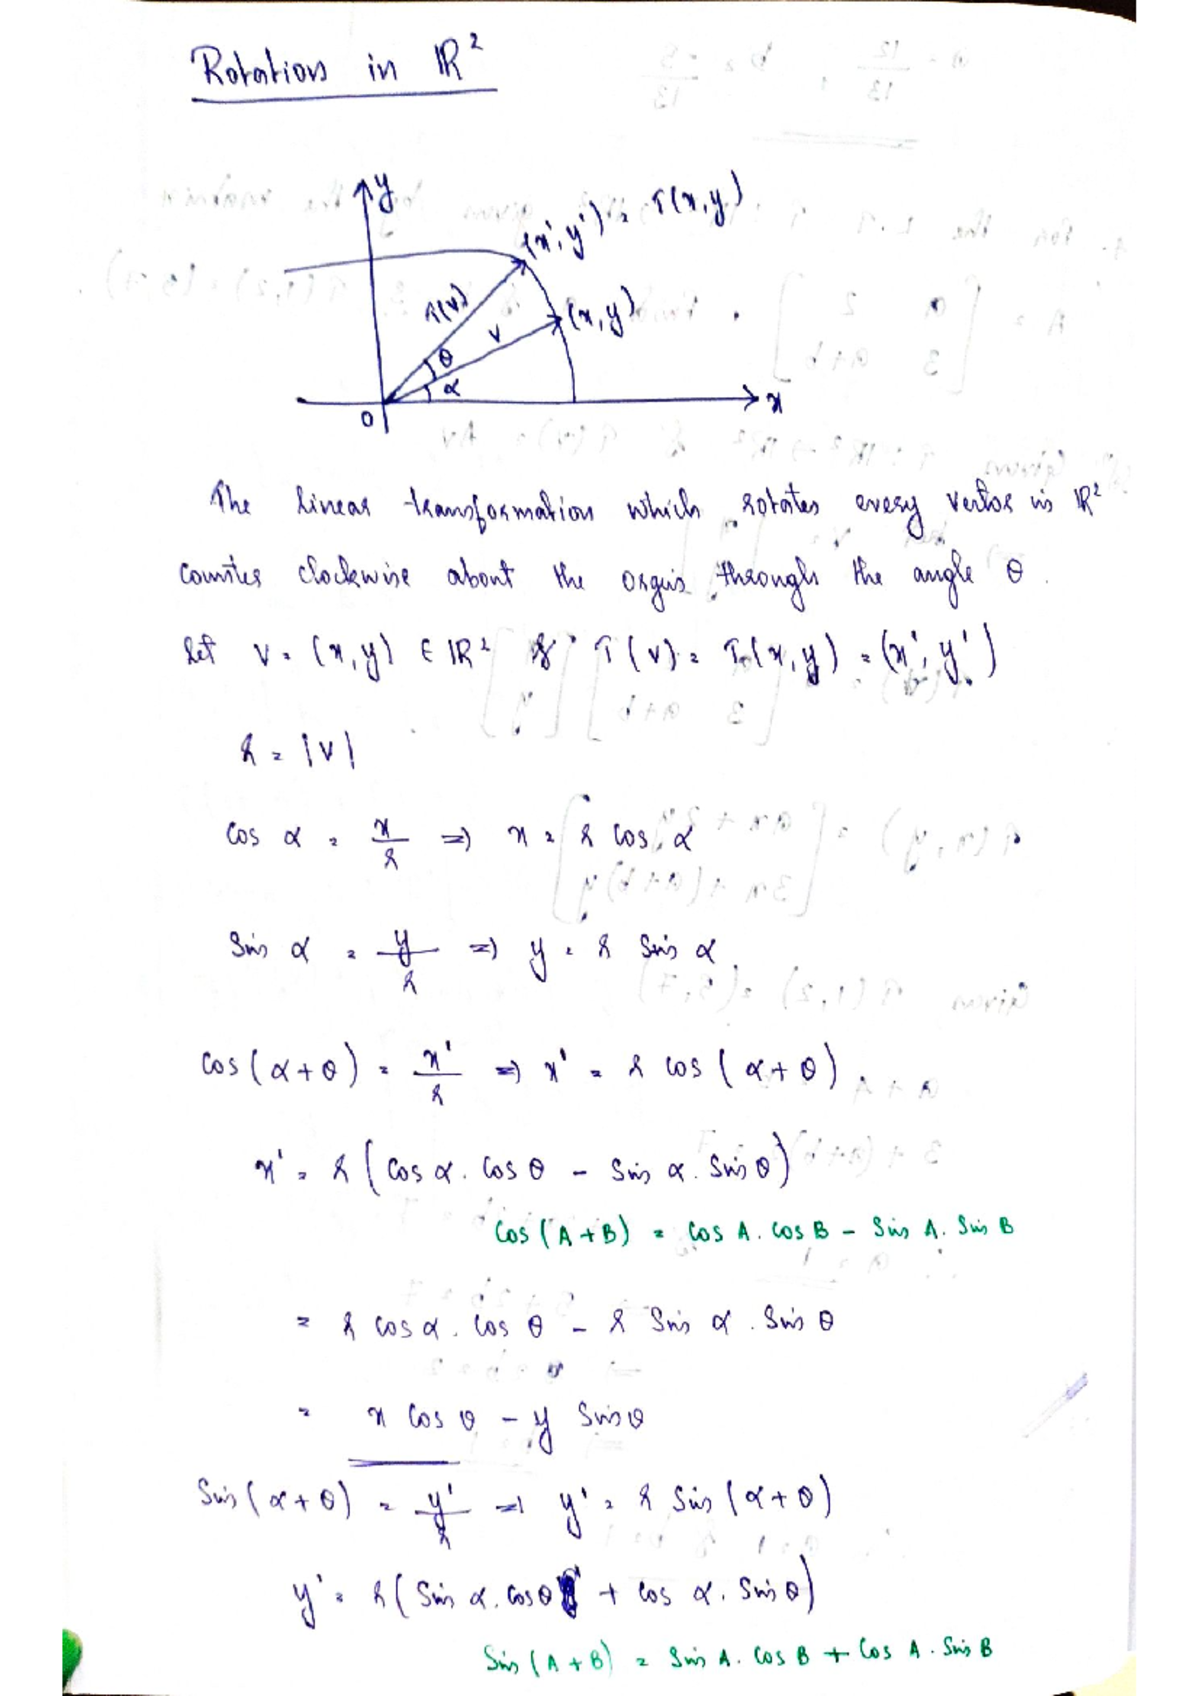 Rotation in ℝ²
y
(x', y') = T(x, y)
T(v)
v
(x, y)
θ
α
0
x
The linear transformation which rotates every vector in ℝ²
counter clockwise about the origin through the angle θ.
Let v = (x, y) ∈ ℝ² & T(v) = T(x, y) = (x', y')
r = |v|
cos α = x/r ⇒ x = r cos α
Sin α = y/r ⇒ y = r Sin α.
cos(α+θ) = x'/r ⇒ x' = r cos(α+θ).
x' = r(cos α . cos θ - Sin α . Sin θ)
cos(A+B) = cos A . cos B - Sin A . Sin B
= r cos α . cos θ - r Sin α . Sin θ
= x cos θ - y Sin θ
Sin(α+θ) = y'/r ⇒ y' = r Sin(α+θ)
y' = r(Sin α . cos θ + cos α . Sin θ)
Sin(A+B) = Sin A . cos B + cos A . Sin B